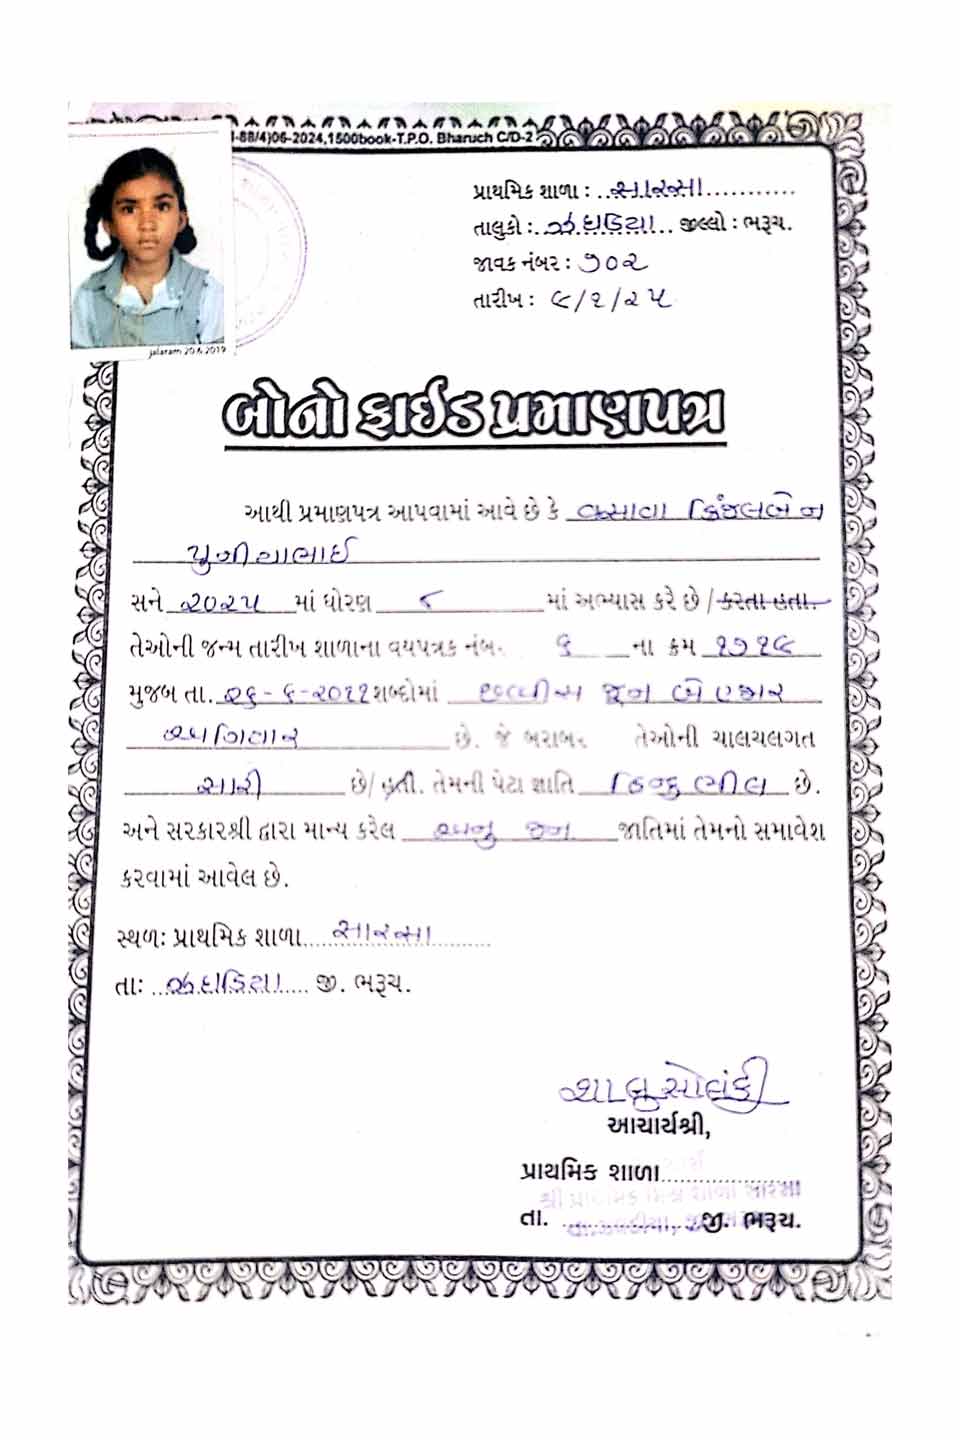 -88/4)06-2024,1500book-T.P.O. Bharuch C/D-2
jalaram 20.6.2019
પ્રાથમિક શાળા : ..સારસા...........
તાલુકો : ..ઝઘડિયા... જીલ્લો : ભરૂચ.
જાવક નંબર : ૭૦૨
તારીખ : ૯/૧/૨૫
બોનોફાઈડ પ્રમાણપત્ર
આથી પ્રમાણપત્ર આપવામાં આવે છે કે વસાવા કિંજલબેન
પુનીયાભાઈ
સને ૨૦૨૫ માં ધોરણ ૮ માં અભ્યાસ કરે છે / કરતા હતા.
તેઓની જન્મ તારીખ શાળાના વયપત્રક નંબર ૬ ના ક્રમ ૧૭૧૯
મુજબ તા. ૨૬-૬-૨૦૧૧ શબ્દોમાં છવ્વીસ જૂન બે હજાર
અગિયાર છે. જે બરાબર તેઓની ચાલચલગત
સારી છે/ હતી. તેમની પેટા જ્ઞાતિ હિન્દુ ભીલ છે.
અને સરકારશ્રી દ્વારા માન્ય કરેલ અનુ જન જાતિમાં તેમનો સમાવેશ
કરવામાં આવેલ છે.
સ્થળ: પ્રાથમિક શાળા....સારસા..........
તા: ...ઝઘડિયા.... જી. ભરૂચ.
શાલુ સોલંકી
આચાર્યશ્રી,
પ્રાથમિક શાળા......................
તા. ......................જી. ભરૂચ.